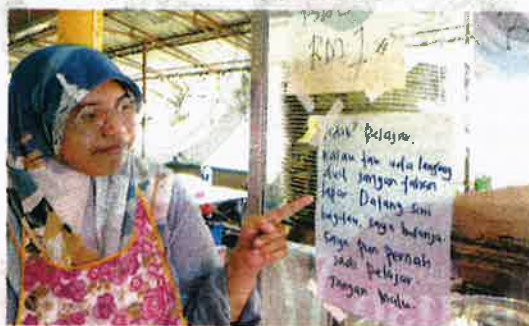 RM1
Adik² Pelajar.
Kalau tak ada langsung
duit jangan tahan
lapar Datang sini
bagitau, saya belanja.
Saya pun pernah
jadi pelajar.
Jangan malu.